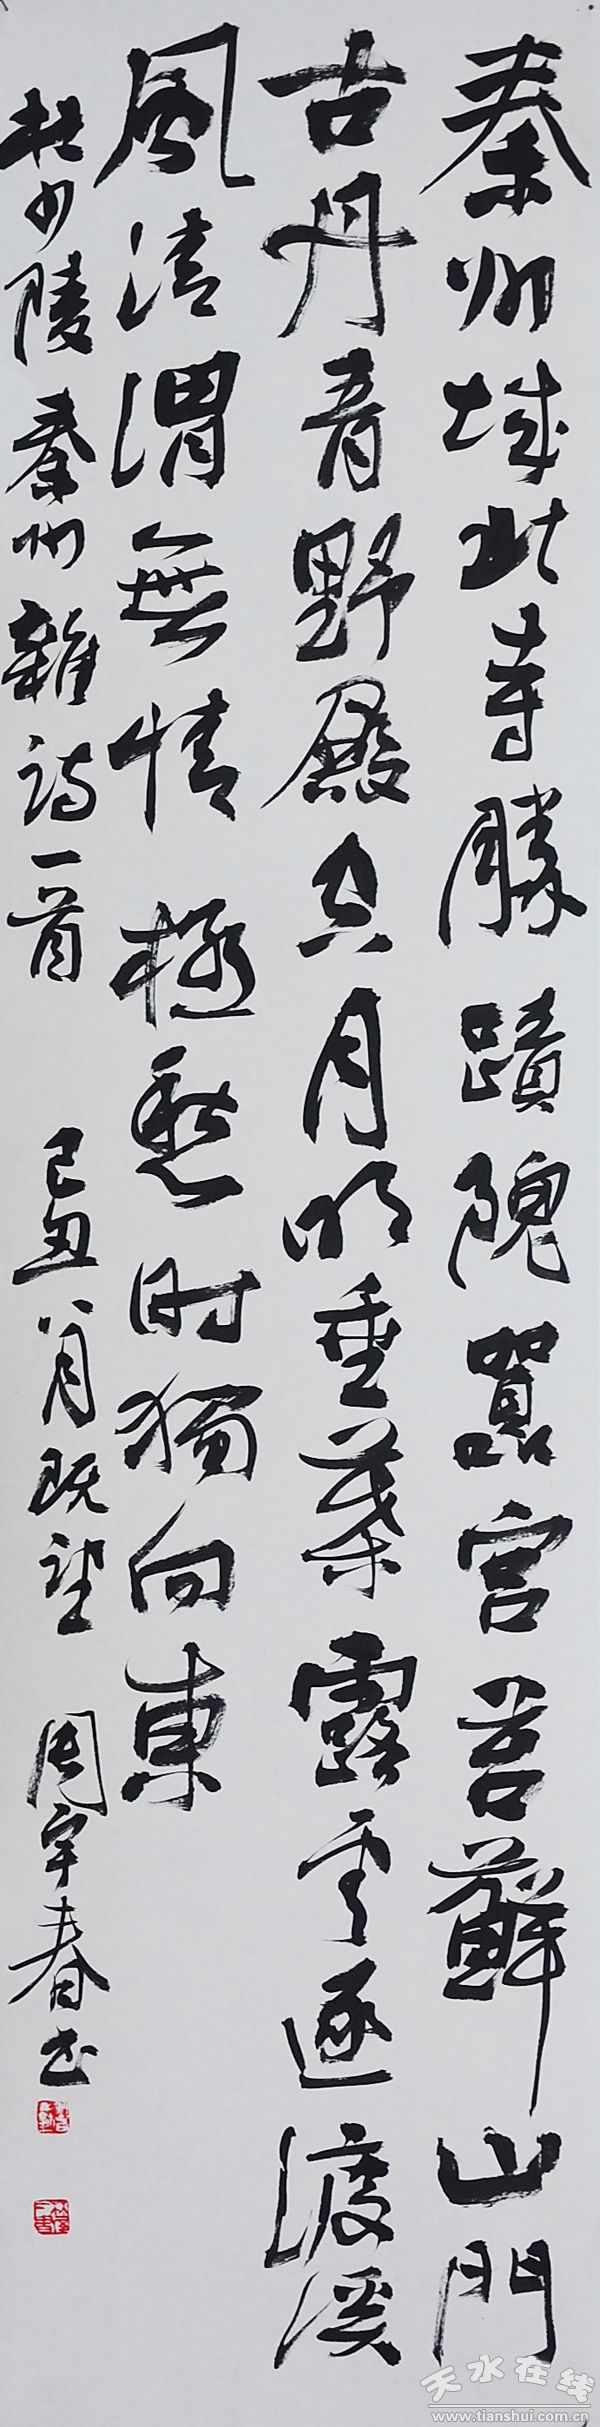 秦州城北寺勝蹟隗囂宮苔蘚山門
古丹青野殿空月明垂葉露雲逐渡溪
風清渭無情極愁時獨向東
杜少陵秦州雜詩一首 己丑八月既望 周宇春书
天水在线
www.tianshui.com.cn